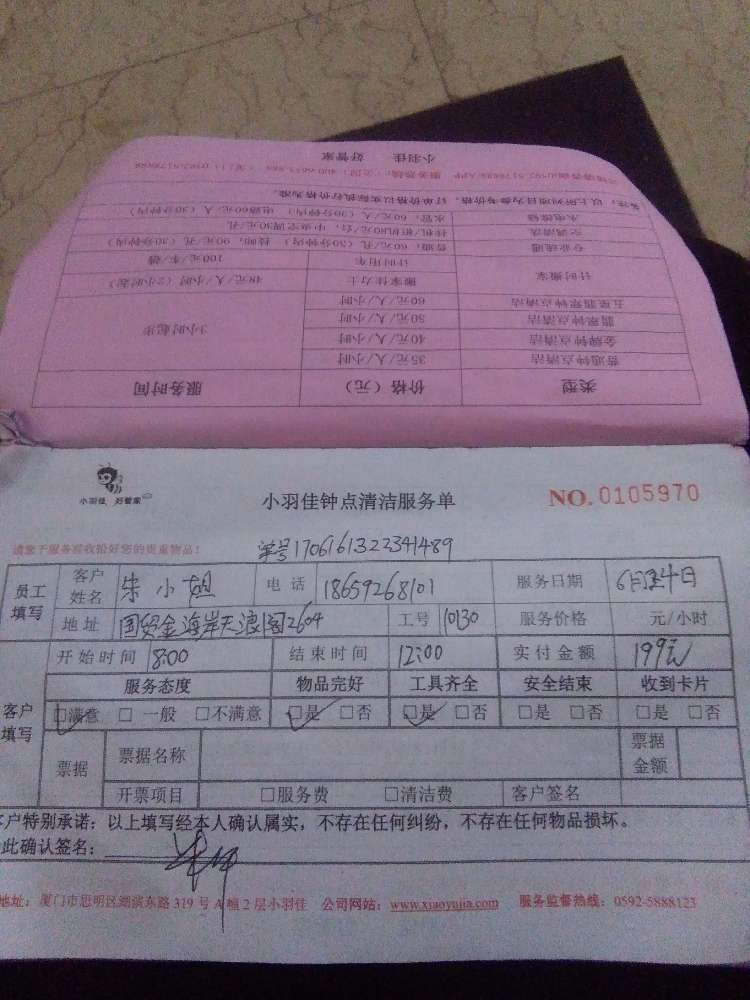 小羽佳 好管家
备注:以上所列项目为参考价格,订单价格以实际执行价格为准。
水电维修 水管:60元/人(30分钟内) 电路60元/人(30分钟内)
空调清洗
专业疏通 普通:60元/孔(30分钟内)
计时搬家 计时用车 100元/车/趟
搬家佳力士 48元/人/小时(2小时起)
五星翡翠钟点清洁 60元/人/小时
翡翠钟点清洁 50元/人/小时
金牌钟点清洁 40元/人/小时 3小时起步
普通钟点清洁 35元/人/小时
类型 价格(元) 服务时间
小羽佳 好管家
小羽佳钟点清洁服务单
NO. 0105970
请您于服务前收拾好您的贵重物品!
单号1706161322341489
员工填写 客户姓名 朱小姐 电话 18659268101 服务日期 6月24日
地址 国贸金海岸天浪阁2604 工号 10130 服务价格 元/小时
客户填写 开始时间 8:00 结束时间 12:00 实付金额 199元
服务态度 物品完好 工具齐全 安全结束 收到卡片
□满意 □一般 □不满意 □是 □否 □是 □否 □是 □否 □是 □否
票据 票据名称 票据金额
开票项目 □服务费 □清洁费 客户签名
客户特别承诺:以上填写经本人确认属实,不存在任何纠纷,不存在任何物品损坏。
此确认签名:
地址:厦门市思明区湖滨东路319号A幢2层小羽佳 公司网站:www.xiaoyujia.com 服务监督热线:0592-5888123